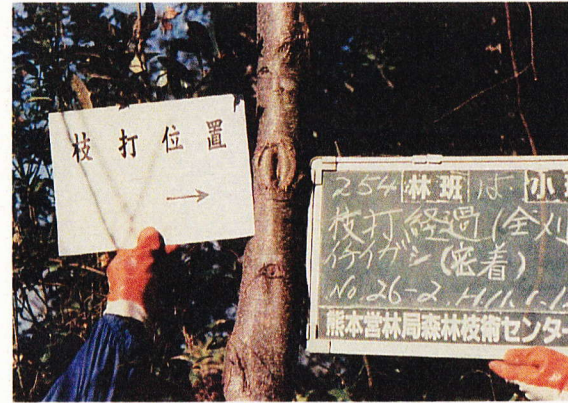 枝打位置
→
254林班は小班
枝打経過(全刈
イチイガシ(密着)
No.26-2.H11.1.1
熊本営林局森林技術センター